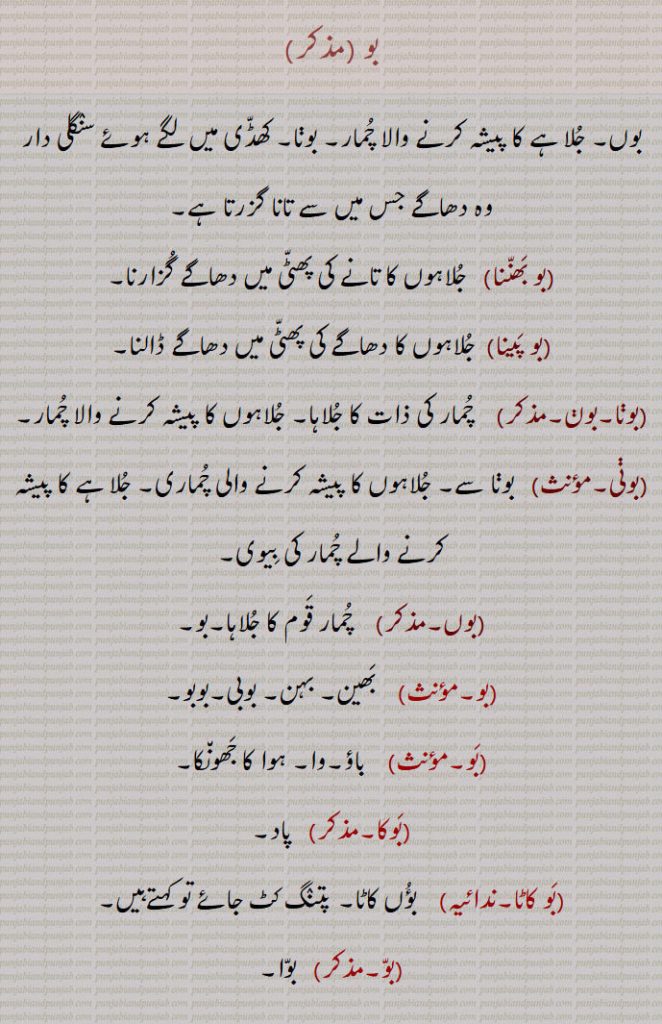 بو (مذکر)
بوں۔ جُلا ہے کا پیشہ کرنے والا چُمار۔ بوݨا۔ کھڈّی میں لگے ہوئے سنگلی دار
وہ دھاگے جس میں سے تانا گزرتا ہے۔
(بو بَھنّنا) جُلاہوں کا تانے کی پھٹّی میں دھاگے گُزارنا۔
(بو پَینا) جُلاہوں کا دھاگے کی پھٹّی میں دھاگے ڈالنا۔
(بوݨا۔بوݨ۔مذکر) چُمار کی ذات کا جُلاہا۔ جُلاہوں کا پیشہ کرنے والا چُمار۔
(بوݨی۔مؤنث) بوݨا سے۔ جُلاہوں کا پیشہ کرنے والی چُماری۔ جُلا ہے کا پیشہ
کرنے والے چُمار کی بِیوی۔
(بوں۔مذکر) چُمار قَوم کا جُلاہا۔بو۔
(بو۔مؤنث) بَھین۔ بہن۔ بوبی۔بوبو۔
(بَو۔مؤنث) باؤ۔وا۔ ہوا کا جَھونکا۔
(بَوکا۔مذکر) پاد۔
(بَو کاٹا۔ندائیہ) بؤُں کاٹا۔ پتنگ کٹ جائے تو کہتےہیں۔
(بوّ۔مذکر) بوّا۔